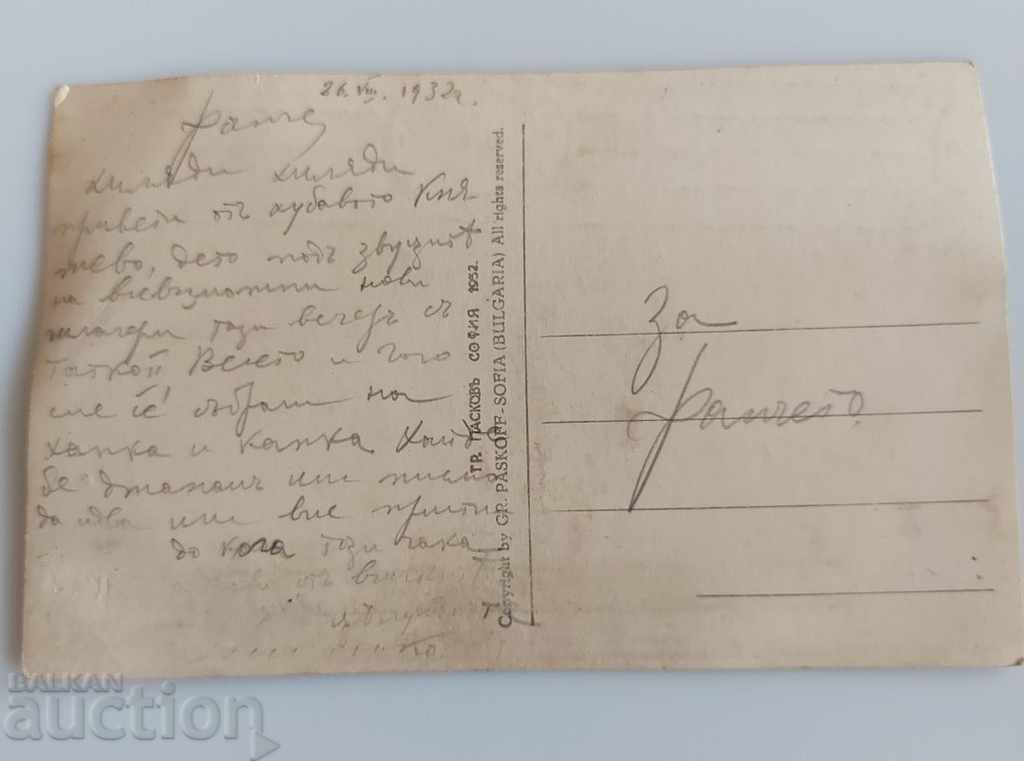 26.VIII. 1932 г.
Фанче
хиляди хиляди
привети отъ хубавото Кня
жево, дето подъ звуците
на всевъзможни нови
шлагери тази вечеръ съ
Татко Велето и Гого
сме се събрали на
хапка и капка Хайде
бе джанамъ или писмо
да идва или вие
до кога тази
отъ
ГР. ПАСКОВЪ СОФИЯ 1932.
Copyright by GR. PASKOFF-SOFIA (BULGARIA) All rights reserved.
За
Фанчето
BALKAN
auction